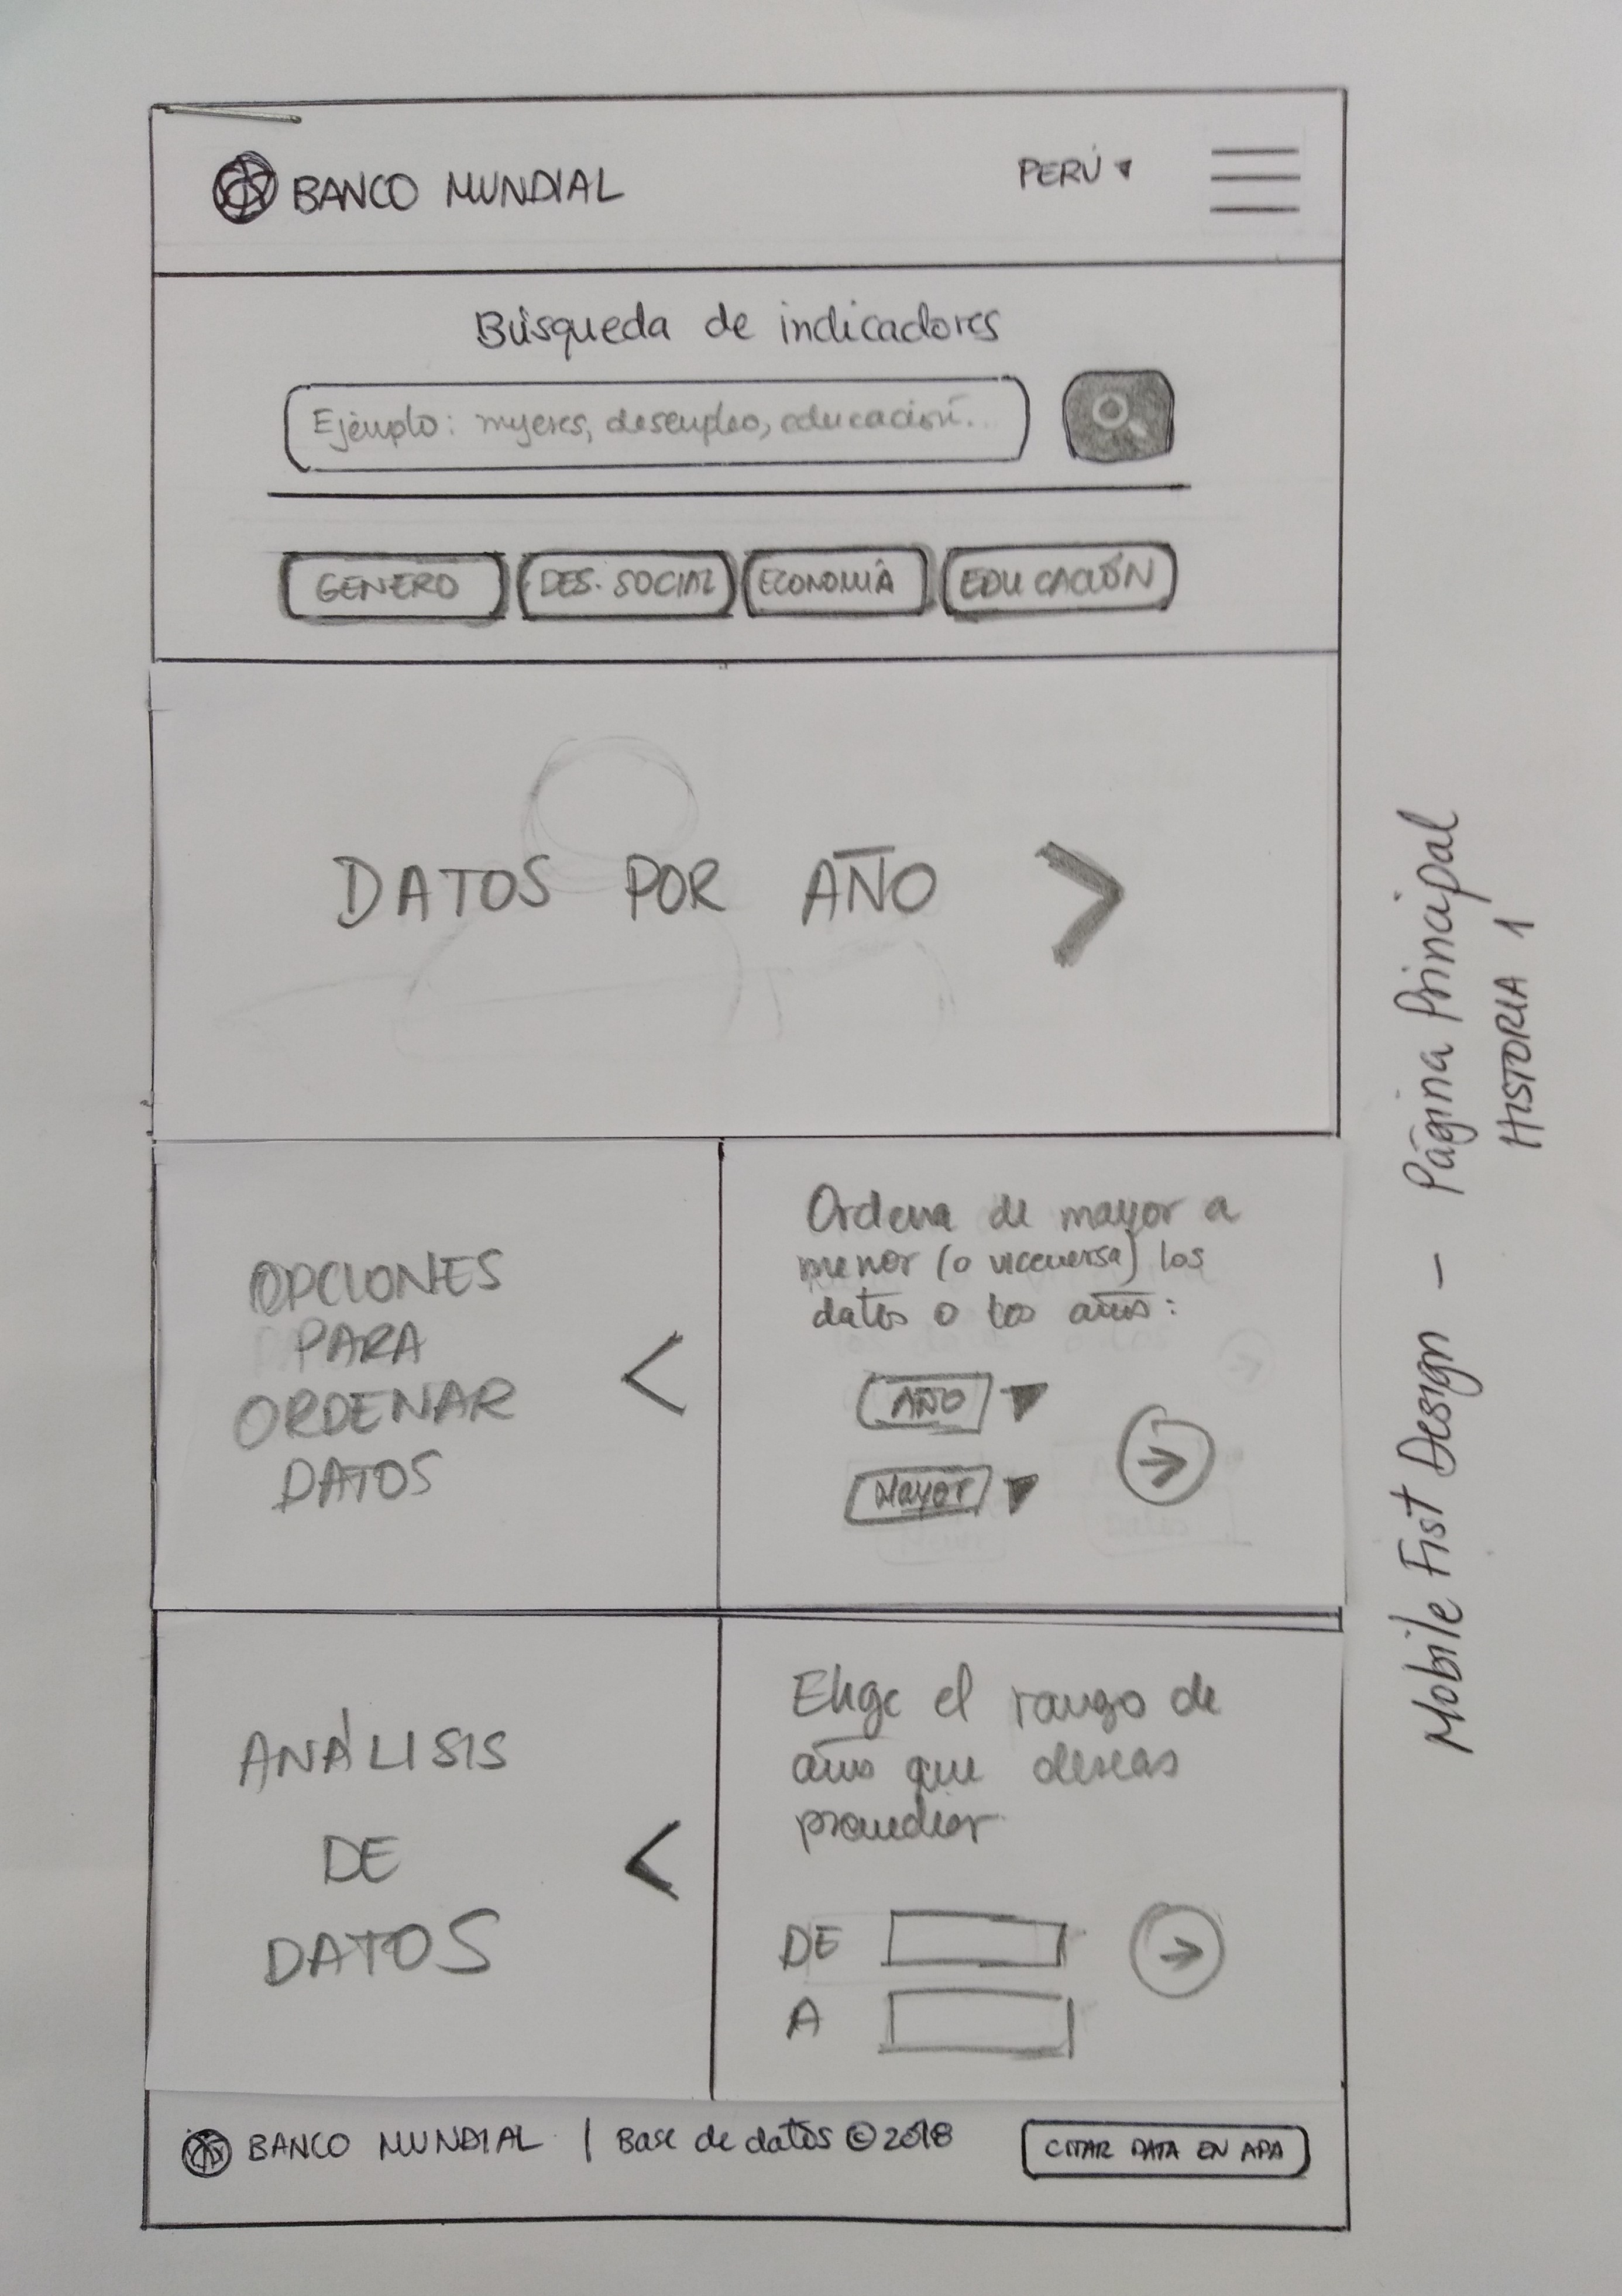 BANCO MUNDIAL
PERÚ
Búsqueda de indicadores
Ejemplo: mujeres, desempleo, educación...
GÉNERO
DES. SOCIAL
ECONOMÍA
EDUCACIÓN
DATOS POR AÑO >
OPCIONES
PARA
ORDENAR
DATOS
<
Ordena de mayor a
menor (o viceversa) los
datos o los años:
AÑO
Mayor
ANÁLISIS
DE
DATOS
<
Elige el rango de
años que deseas
promediar
DE
A
BANCO MUNDIAL | Base de datos © 2018
CITAR DATA EN APA
Mobile Fist Design - Página Principal
HISTORIA 1